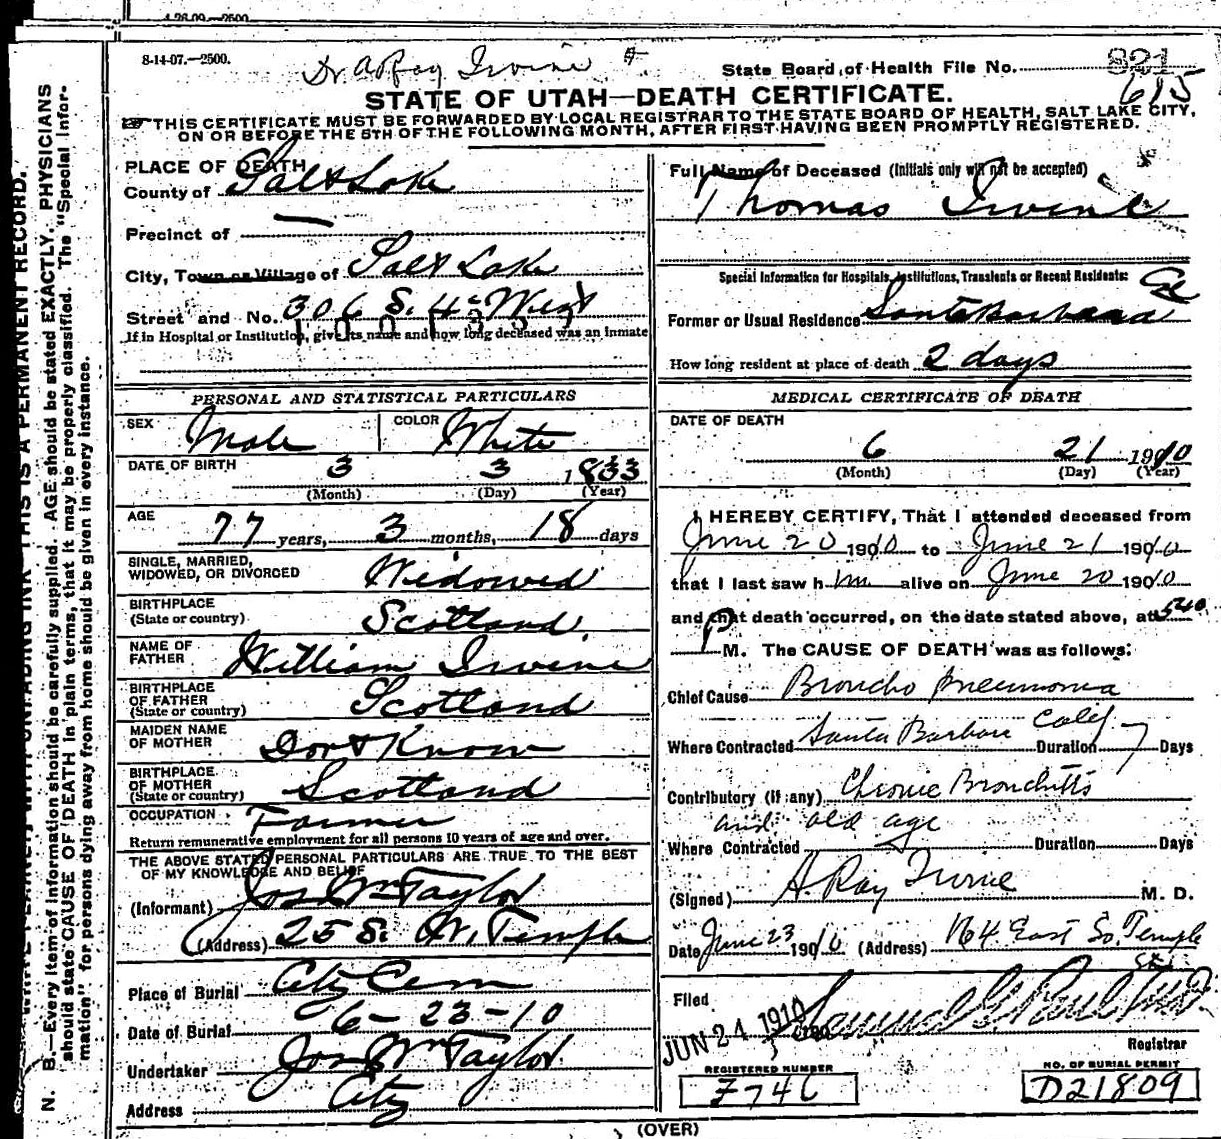 4-28-09.—2500
8-14-07.—2500.
Dr A Ray Irvine
State Board of Health File No. 821
615
STATE OF UTAH—DEATH CERTIFICATE.
THIS CERTIFICATE MUST BE FORWARDED BY LOCAL REGISTRAR TO THE STATE BOARD OF HEALTH, SALT LAKE CITY,
ON OR BEFORE THE 5TH OF THE FOLLOWING MONTH, AFTER FIRST HAVING BEEN PROMPTLY REGISTERED.
PLACE OF DEATH
County of Salt Lake
Precinct of —
City, Town or Village of Salt Lake
Street and No. 306 S. 4th West
If in Hospital or Institution, give its name and how long deceased was an inmate
PERSONAL AND STATISTICAL PARTICULARS
SEX Male COLOR White
DATE OF BIRTH 3 3 1833
(Month) (Day) (Year)
AGE 77 years, 3 months, 18 days
SINGLE, MARRIED,
WIDOWED, OR DIVORCED Widowed
BIRTHPLACE
(State or country) Scotland
NAME OF
FATHER William Irvine
BIRTHPLACE
OF FATHER
(State or country) Scotland
MAIDEN NAME
OF MOTHER Dont Know
BIRTHPLACE
OF MOTHER
(State or country) Scotland
OCCUPATION Farmer
Return remunerative employment for all persons 10 years of age and over.
THE ABOVE STATED PERSONAL PARTICULARS ARE TRUE TO THE BEST
OF MY KNOWLEDGE AND BELIEF
(Informant) Jos Wm Taylor
(Address) 25 S. W. Temple
Place of Burial City Cem
Date of Burial 6-23-10
Undertaker Jos Wm Taylor
Address City
Full Name of Deceased (Initials only will not be accepted)
Thomas Irvine
Special Information for Hospitals, Institutions, Transients or Recent Residents:
Former or Usual Residence Santa Barbara Cal
How long resident at place of death 2 days
MEDICAL CERTIFICATE OF DEATH
DATE OF DEATH
6 21 1910
(Month) (Day) (Year)
I HEREBY CERTIFY, That I attended deceased from
June 20 1910 to June 21 1910
that I last saw him alive on June 20 1910
and that death occurred, on the date stated above, at 5:40
P M. The CAUSE OF DEATH was as follows:
Chief Cause Broncho Pneumonia
Where Contracted Santa Barbara Calif Duration 7 Days
Contributory (if any) Chronic Bronchitis
and old age
Where Contracted Duration Days
(Signed) A. Ray Irvine M. D.
Date June 23 1910 (Address) 164 East So. Temple St
Filed
JUN 24 1910
Registrar
REGISTERED NUMBER
NO. OF BURIAL PERMIT
D21809
(OVER)
N. B.—Every item of information should be carefully supplied. AGE should be stated EXACTLY. PHYSICIANS
should state CAUSE OF DEATH in plain terms, that it may be properly classified. The "Special Infor-
mation" for persons dying away from home should be given in every instance.